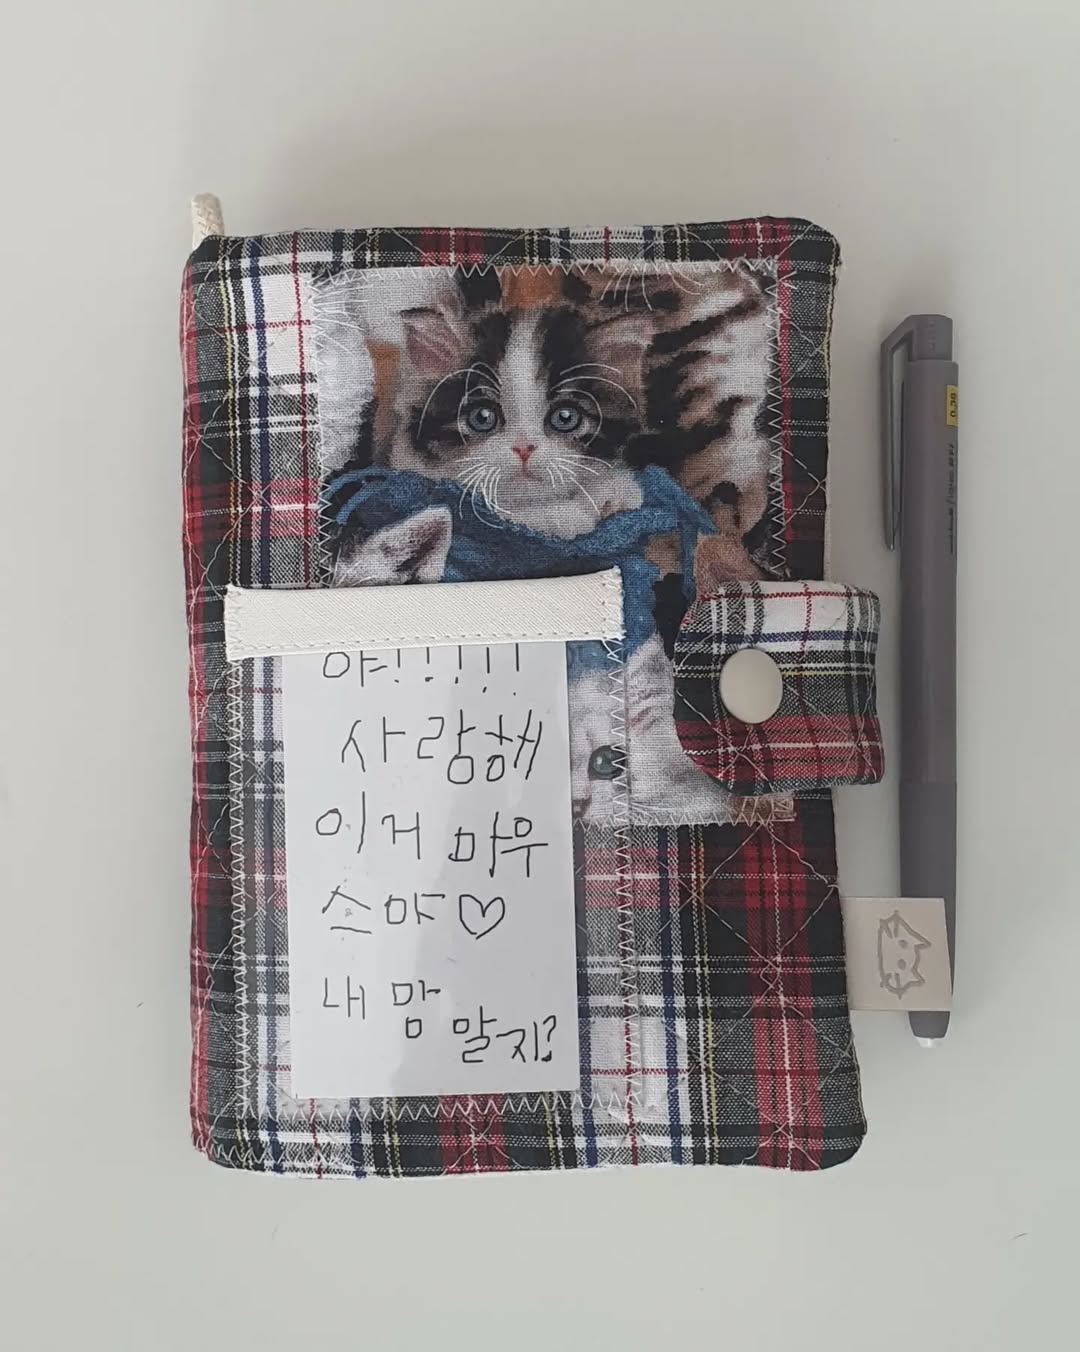 야!!!!!
사랑해
이거 마우
스야♡
내 맘
알지?
0.28